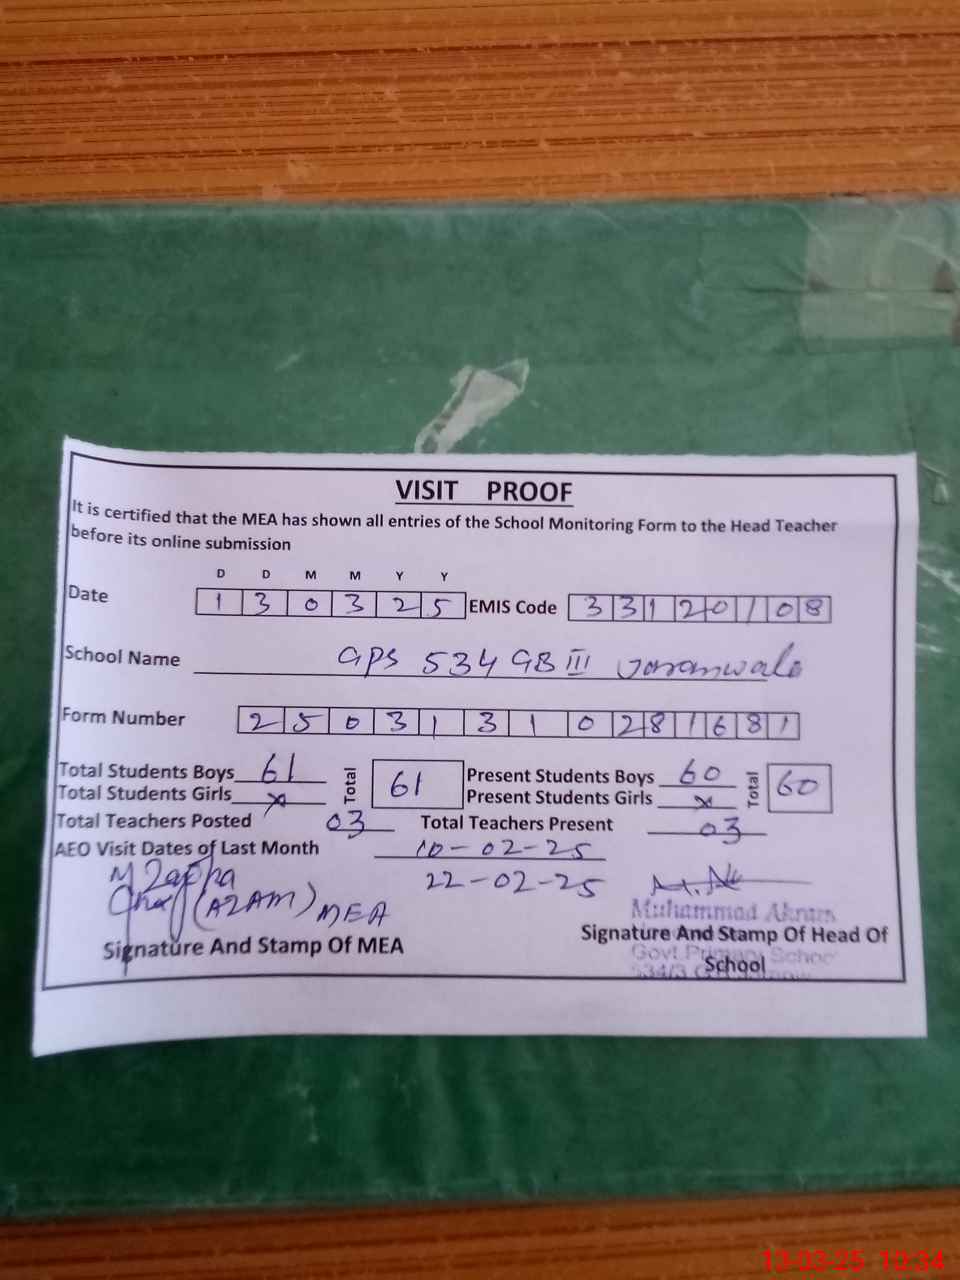 VISIT PROOF
It is certified that the MEA has shown all entries of the School Monitoring Form to the Head Teacher
before its online submission
D D M M Y Y
Date 1 3 0 3 2 5 EMIS Code 3 3 1 2 0 1 0 8
School Name GPS 534 GB III
Form Number 2 5 0 3 1 3 1 0 2 8 1 6 8 1
Total Students Boys 61 Total 61 Present Students Boys 60 Total 60
Total Students Girls x Present Students Girls x
Total Teachers Posted 03 Total Teachers Present 03
AEO Visit Dates of Last Month 10-02-25
22-02-25
(AZAM) MEA
Muhammad Akram
Signature And Stamp Of MEA Signature And Stamp Of Head Of
Govt. Primary School
School
534/3
13-03-25 10:34